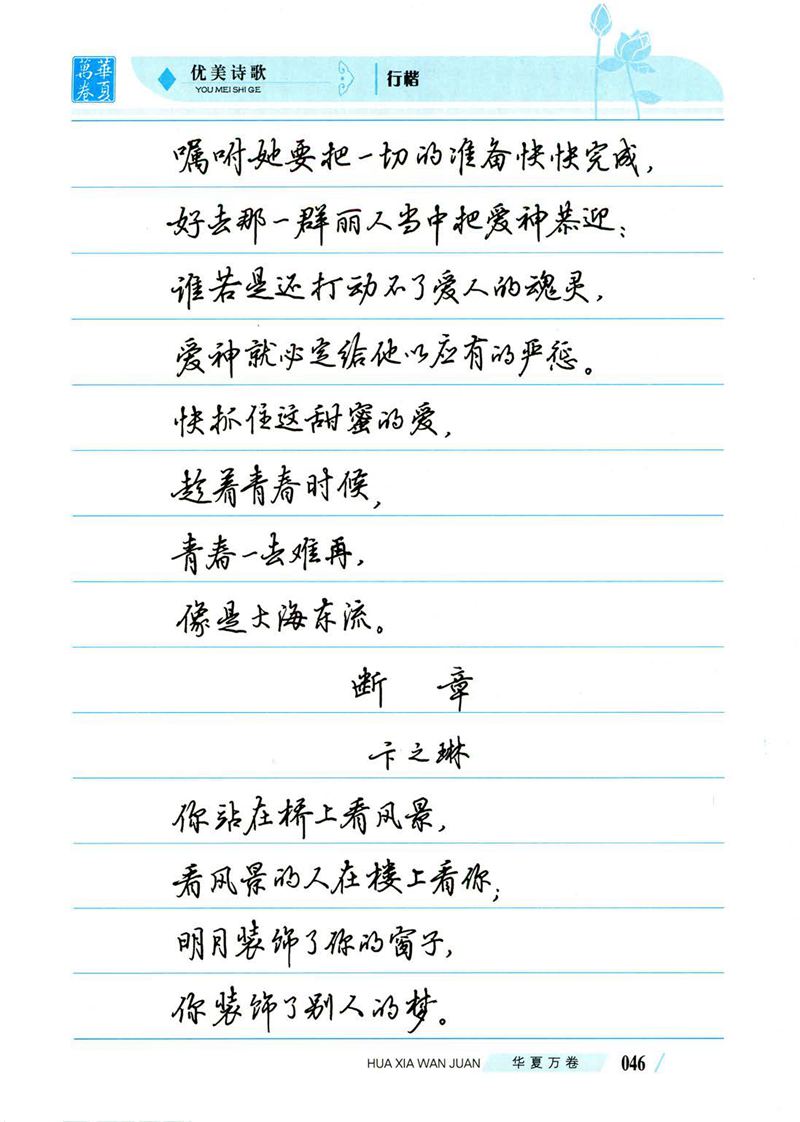 華夏
萬卷
优美诗歌
YOU MEI SHI GE
行楷
嘱咐她要把一切的准备快快完成，
好去那一群丽人当中把爱神恭迎；
谁若是还打动不了爱人的魂灵，
爱神就必定给他以应有的严惩。
快抓住这甜蜜的爱，
趁着青春时候，
青春一去难再，
像是大海东流。
断 章
卞之琳
你站在桥上看风景，
看风景的人在楼上看你；
明月装饰了你的窗子，
你装饰了别人的梦。
HUA XIA WAN JUAN
华夏万卷
046